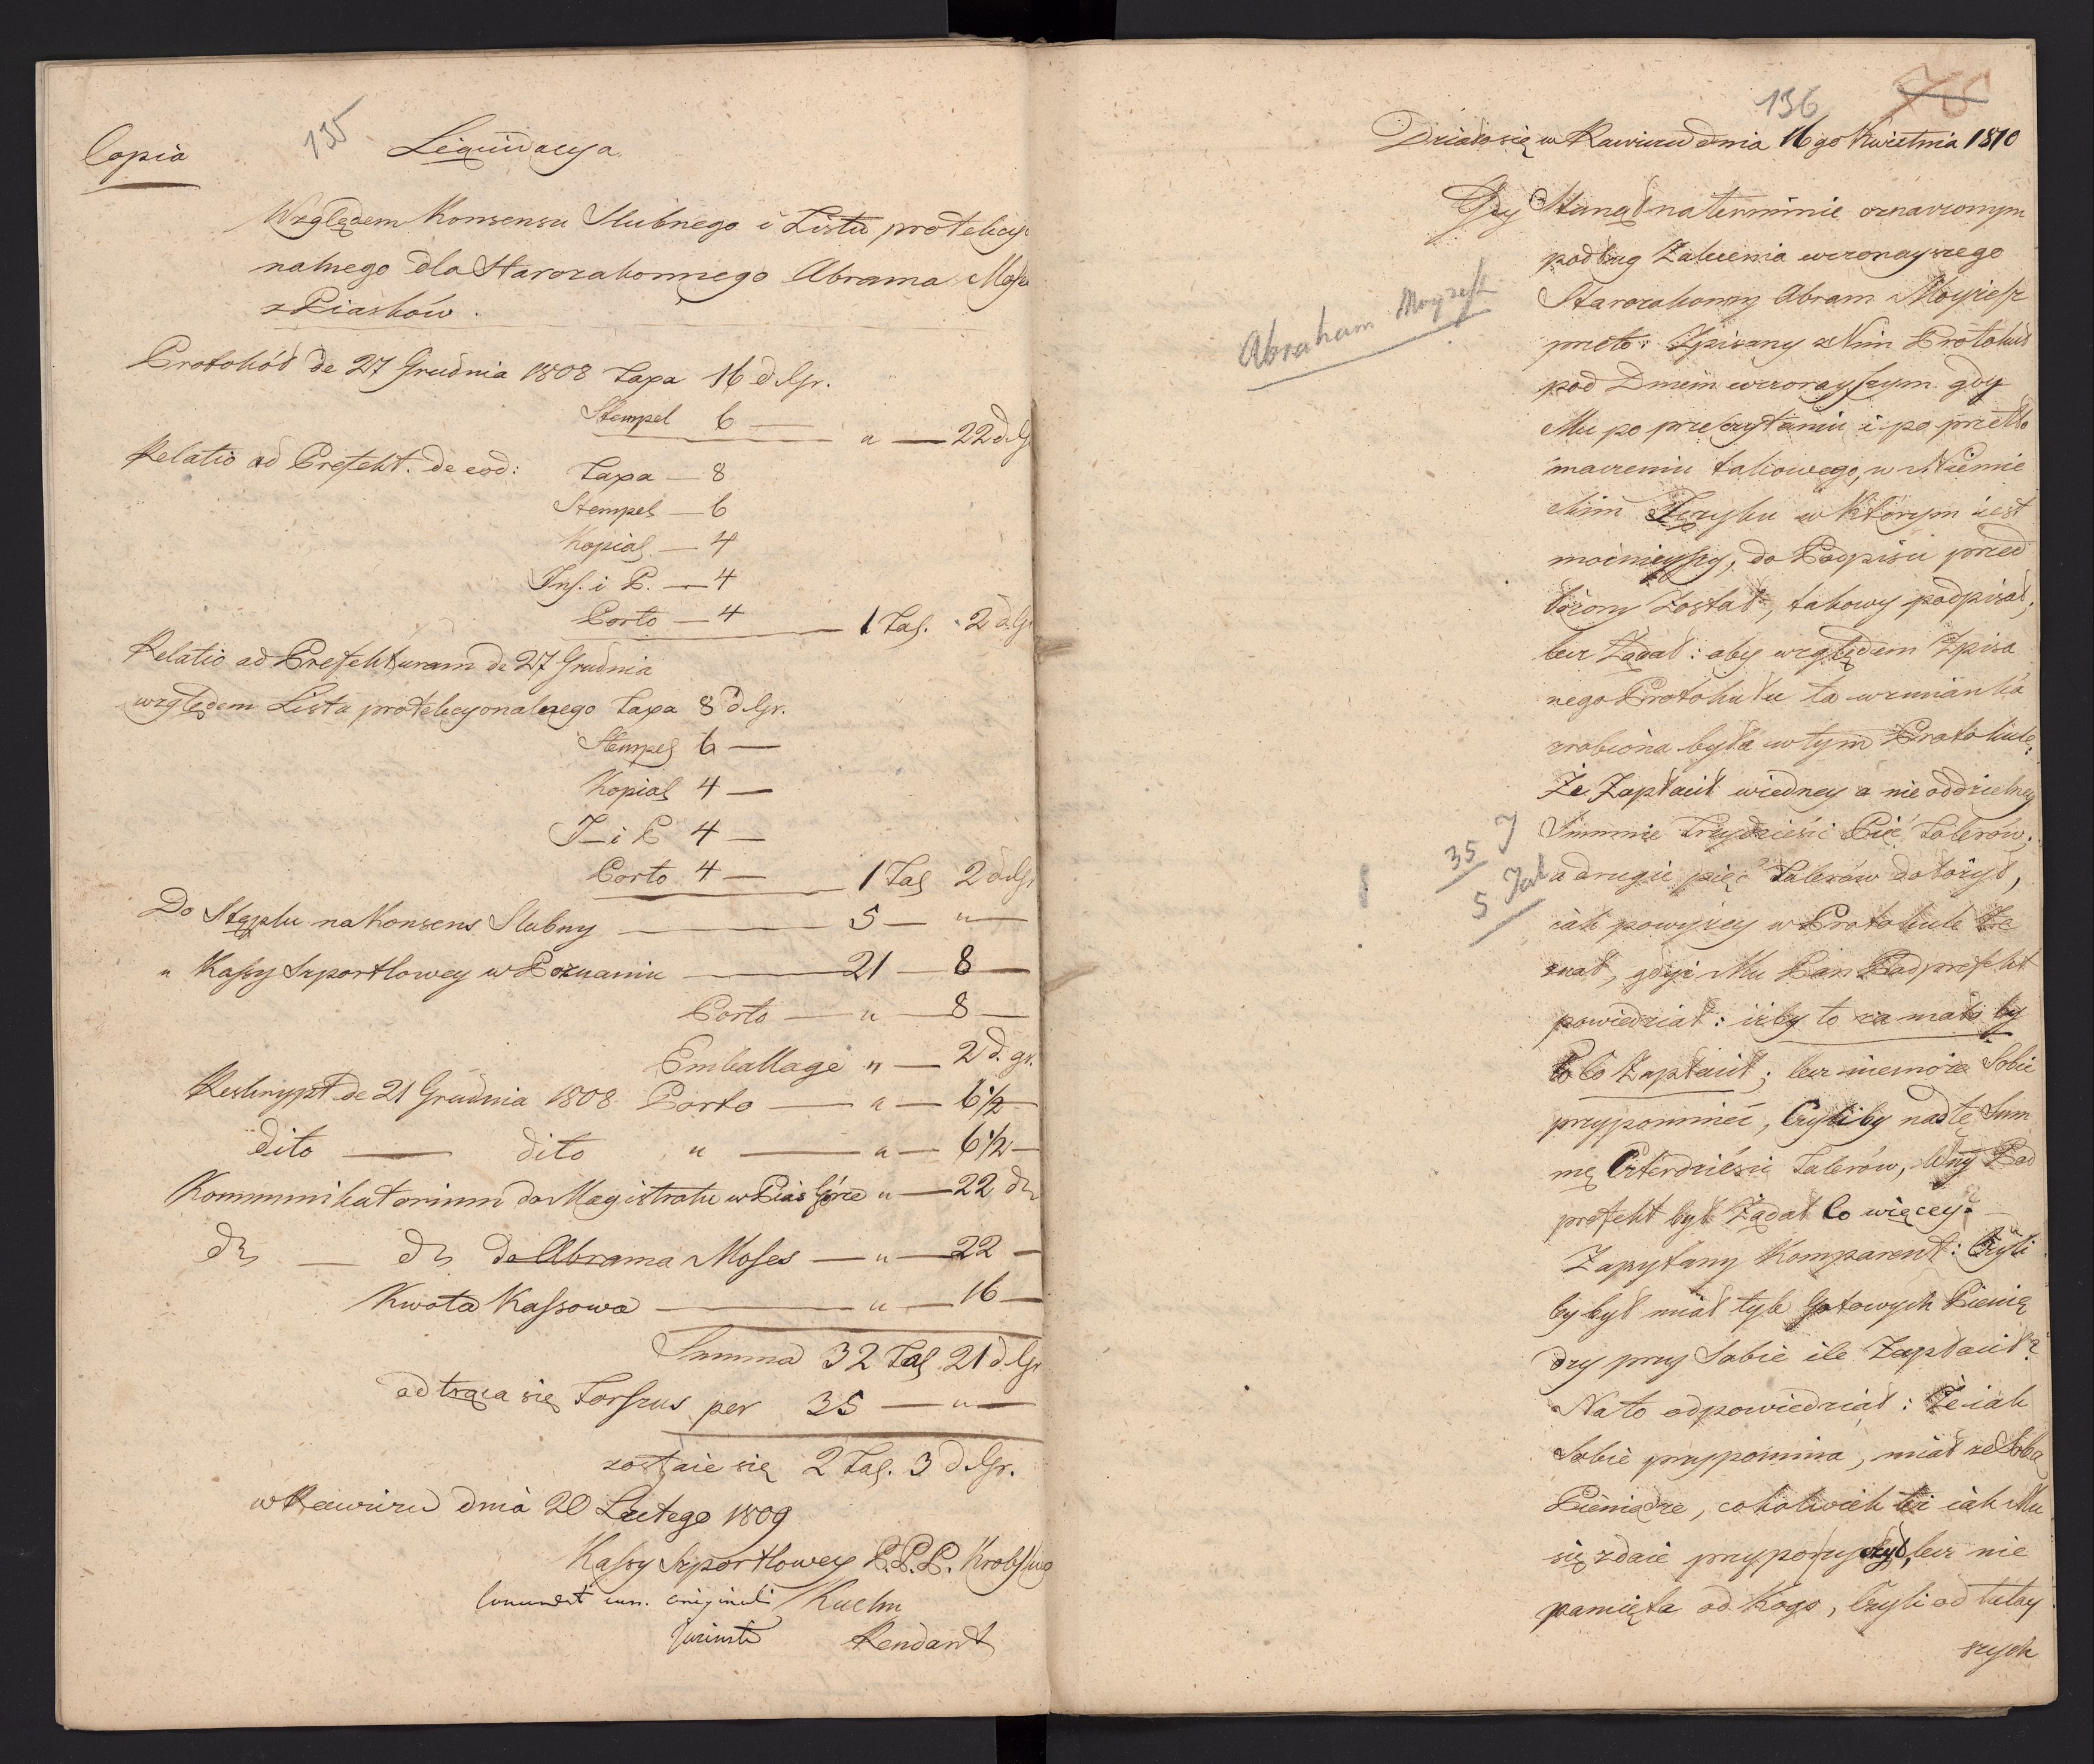 135
Copia
Liquidacya
Względem Konsensu Slubnego i Listu protekcyo
nalnego dla Starozakonnego Abrama Moses
z Piasków.
Protokół de 27 Grudnia 1808 Taxa 16 d Gr.
Stempel 6 — " — 22 d G
Relatio ad Prefekt. de eod:
Taxa — 8
Stempel — 6
Kopial — 4
Ins. i P. — 4
Porto — 4 — 1 Tal. 2 d Gr
Relatio ad Prefekturam de 27 Grudnia
względem Listu protekcyonalnego Taxa 8 d Gr.
Stempel 6 —
Kopial 4 —
I — i P 4 —
Porto 4 — 1 Tal 2 d Gr
Do Stęplu na Konsens Slubny — 5 — " —
" Kassy Szportlowey w Poznaniu — 21 — 8 —
Porto — " — 8 —
Emballage " — 2 d. gr.
Reskrypt de 21 Grudnia 1808 Porto — " — 6 1/2 —
dito — dito " — " — 6 1/2 —
Kommunikatorium do Magistratu w Pias Górce " — 22 do
do — do do Abrama Moses — " — 22 —
Kwota Kassowa — " — 16 —
Summa 32 Tal 21 d Gr
odtrąca się Forszus per 35 — " —
zostaie się 2 Tal. 3 d Gr.
w Rawiczu dnia 20 Lutego 1809
Kassy Szportlowey P.P.P. Krobskiego
Concordat cum originali Kuehn
Rendant
136
Działo się w Rawiczu dnia 16go Kwietnia 1810
Gdy Stanął na terminie oznaczonym
podług Zalecenia wczorayszego
Starozakonny Abram Moyżesz
przeto: Zpisany z Nim Protokuł
pod Dniem wczorayszym gdy
Mu po przeczytaniu i po przetłó
maczeniu takowego, w Niemie
ckim Języku w Którym iest
mocnieyszy, do Podpisu przed
łożony Został, takowy podpisał,
lecz Żądał: aby względem Zpisa
nego Protokułu ta wzmianka
zrobiona była w tym Protokule,
Że Zapłacił wiedney a nie oddzielney
Summie Trzydzieści Pięć Talerów,
a drugie pięć Talerów dołożył,
iak powyżey w Protokule Ze
znał, gdyż Mu Pan Podprefekt
powiedział: iżby to za mało by
ło Co Zapłacił; lecz niemoże Sobie
przypomnieć, Czyliby nad tę Sum
mę Czterdzieści Talerów, Wny Pod
prefekt był Żądał Co więcey. —
Zapytany Komparent: Czyli
by był miał tyle Gotowych Pienię
dzy przy Sobie ile Zapłacił?
Na to odpowiedział: Że iak
Sobie przypomina, miał ze Sobą
Pieniądze, cokolwiek też iak Mu
się zdaie przypożyczył, lecz nie
pamięta od Kogo, Czyli od tutay
szych
Abraham Moyzesz
35 T
5 Tal